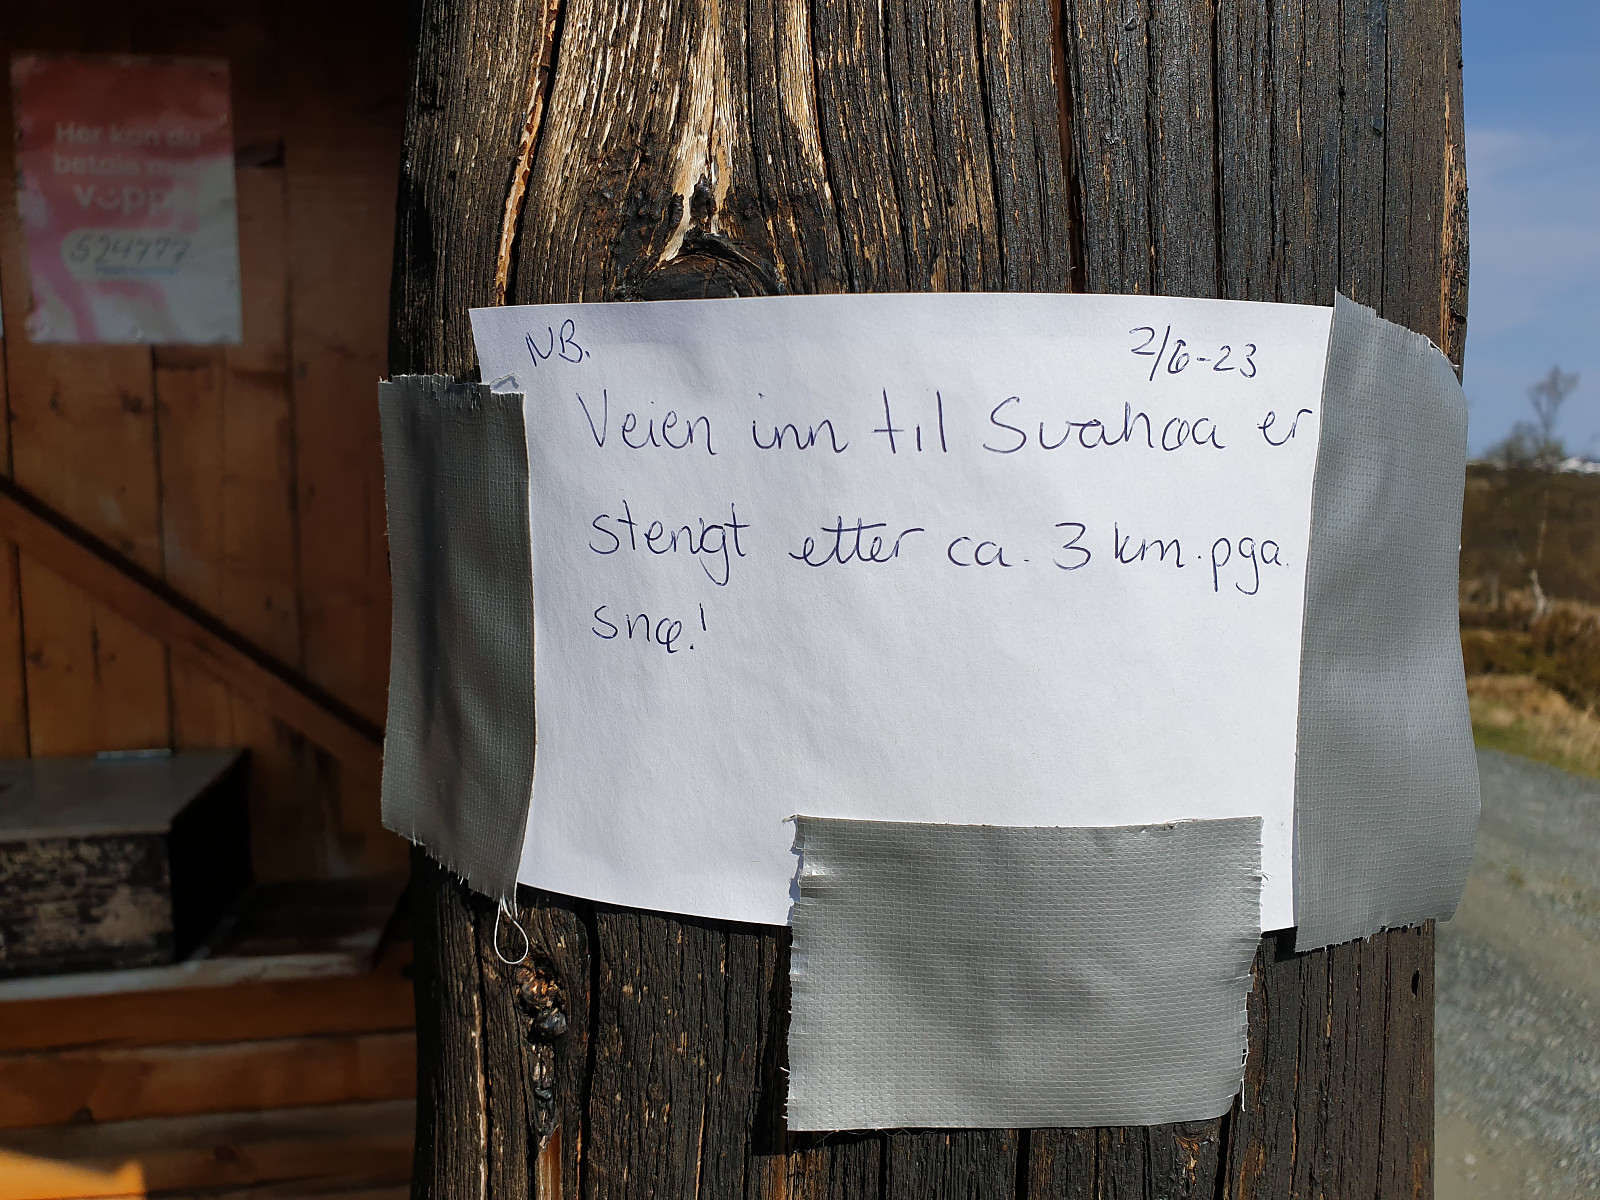 Her kan du
betale med
Vipps
NB.
2/6-23
Veien inn til Svahoa er
stengt etter ca. 3 km. pga.
snø!